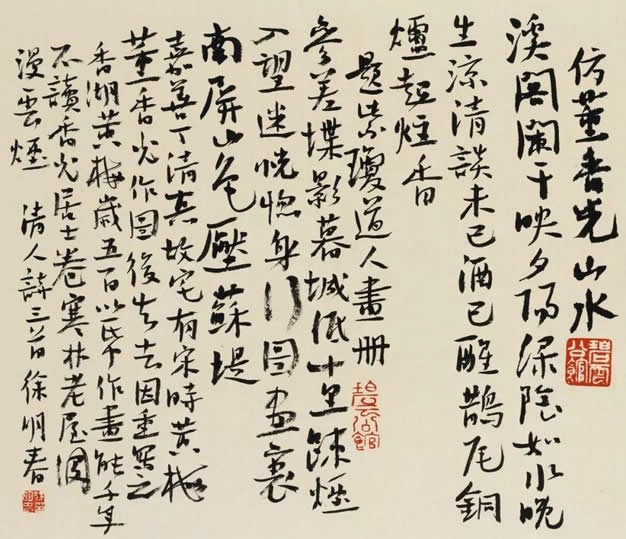 仿董香光山水
溪閣闌干映夕陽綠陰如水晚
生涼清談未已酒已醒鵲尾銅
爐起炷香
題紫瓊道人畫册
參差堞影暮城低十里踈煙
入望迷恍惚身行圖畫裏
南屏山色壓蘇堤
嘉善丁清真故宅有宋時黃梅
董香光作圖後失去因重寫之
香湖黃梅歲五百以帋作畫能千年
不讀香光居士卷寒林老屋
漫雲煙 清人詩三首 徐明春